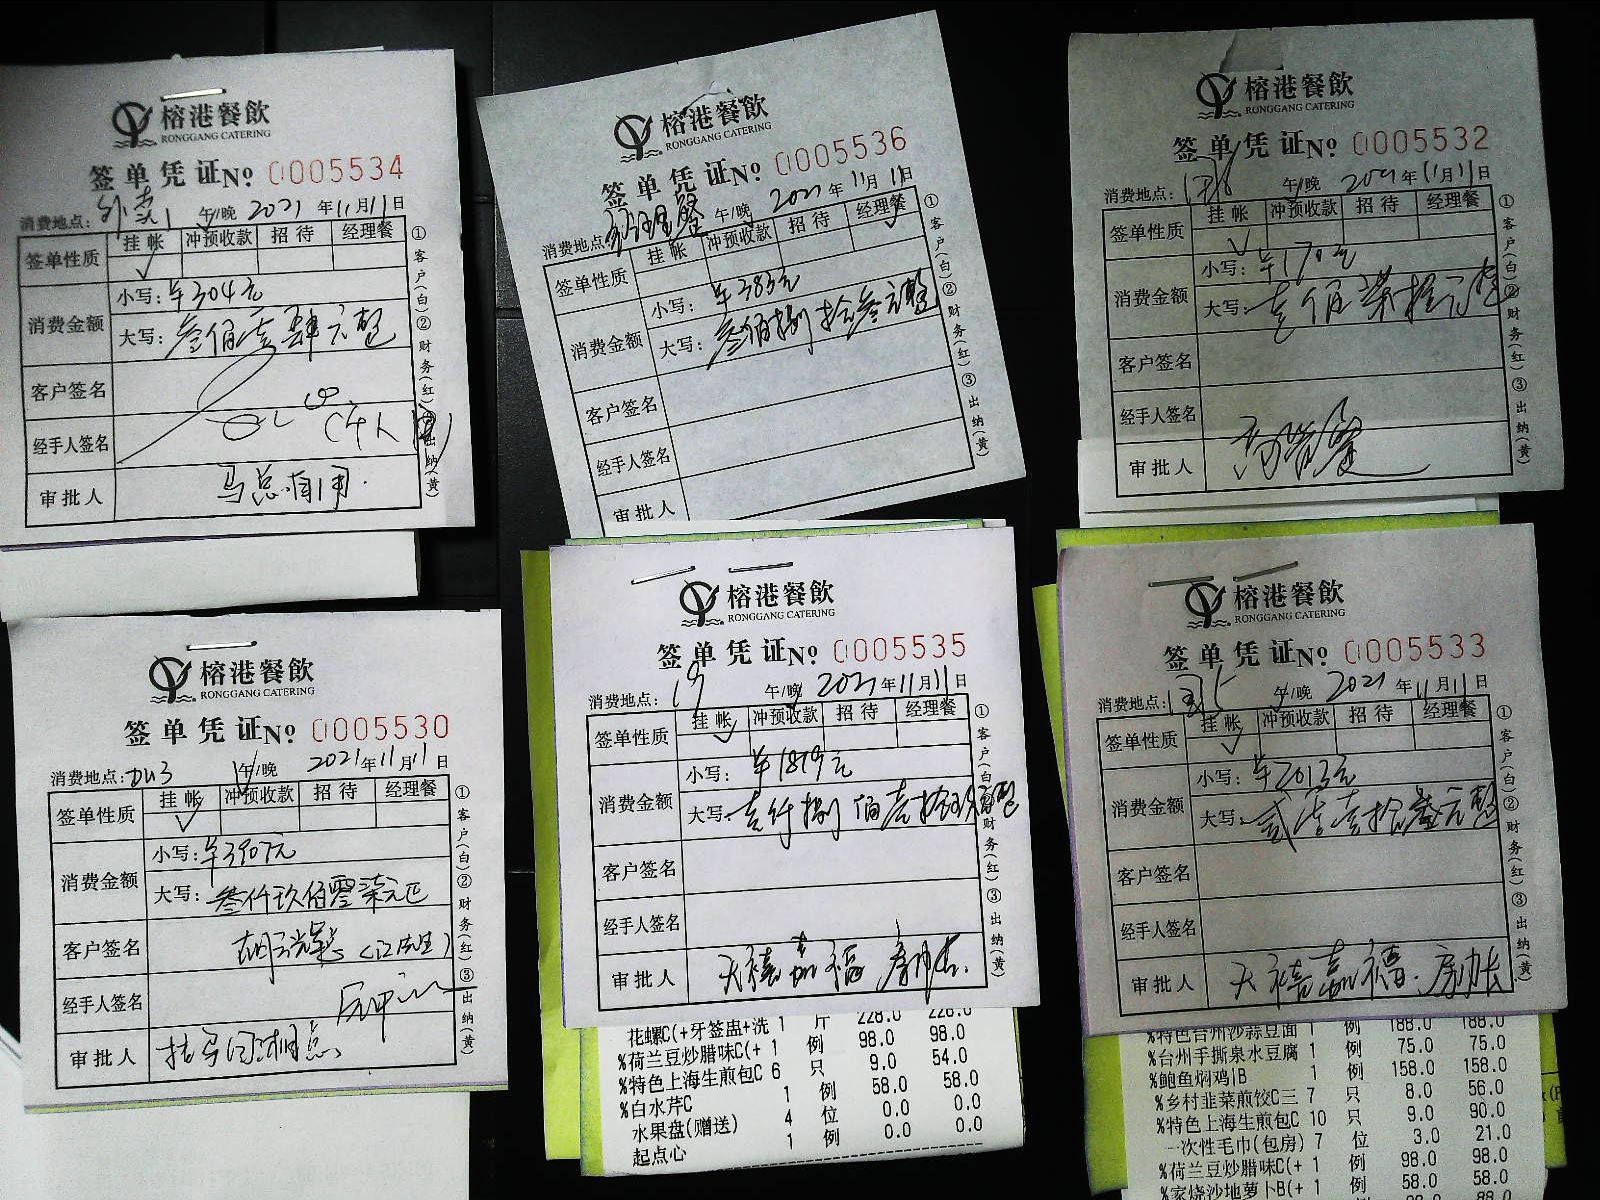 榕港餐飲
RONGGANG CATERING
签单凭证No 0005534
消费地点: 外卖1 午/晚 2021年11月11日
签单性质 挂帐 冲预收款 招待 经理餐
消费金额
小写: ¥304元
大写: 叁佰零肆元整
客户签名
经手人签名
审批人 马总.
①客户(白)②财务(红)③出纳(黄)
榕港餐飲
RONGGANG CATERING
签单凭证No 0005536
消费地点: 经理餐 午/晚 2021年11月11日
签单性质 挂帐 冲预收款 招待 经理餐
消费金额
小写: ¥383元
大写: 叁佰捌拾叁元整
客户签名
经手人签名
审批人
①客户(白)②财务(红)③出纳(黄)
榕港餐飲
RONGGANG CATERING
签单凭证No 0005532
消费地点: 午/晚 2021年11月11日
签单性质 挂帐 冲预收款 招待 经理餐
消费金额
小写: ¥170元
大写: 壹佰柒拾元整
客户签名
经手人签名
审批人
①客户(白)②财务(红)③出纳(黄)
榕港餐飲
RONGGANG CATERING
签单凭证No 0005530
消费地点: 午/晚 2021年11月11日
签单性质 挂帐 冲预收款 招待 经理餐
消费金额
小写: ¥3907元
大写: 叁仟玖佰零柒元正
客户签名
经手人签名
审批人
①客户(白)②财务(红)③出纳(黄)
榕港餐飲
RONGGANG CATERING
签单凭证No 0005535
消费地点: 19 午/晚 2021年11月11日
签单性质 挂帐 冲预收款 招待 经理餐
消费金额
小写: ¥1819元
大写: 壹仟捌佰壹拾玖元整
客户签名
经手人签名
审批人 天禧嘉福 房
①客户(白)②财务(红)③出纳(黄)
花螺C(+牙签盅+洗 1 斤 228.0 228.0
%荷兰豆炒腊味C(+ 1 例 98.0 98.0
%特色上海生煎包C 6 只 9.0 54.0
%白水芹C 1 例 58.0 58.0
水果盘(赠送) 4 位 0.0 0.0
起点心 1 例 0.0 0.0
榕港餐飲
RONGGANG CATERING
签单凭证No 0005533
消费地点: 午/晚 2021年11月11日
签单性质 挂帐 冲预收款 招待 经理餐
消费金额
小写: ¥2013元
大写: 贰仟零壹拾叁元整
客户签名
经手人签名
审批人 天禧嘉福. 房
①客户(白)②财务(红)③出纳(黄)
%特色台州沙蒜豆面 1 例 188.0 188.0
%台州手撕泉水豆腐 1 例 75.0 75.0
%鲍鱼焖鸡IB 1 例 158.0 158.0
%乡村韭菜煎饺C三 7 只 8.0 56.0
%特色上海生煎包C 10 只 9.0 90.0
一次性毛巾(包房) 7 位 3.0 21.0
%荷兰豆炒腊味C(+ 1 例 98.0 98.0
%家烧沙地萝卜B(+ 1 例 58.0 58.0